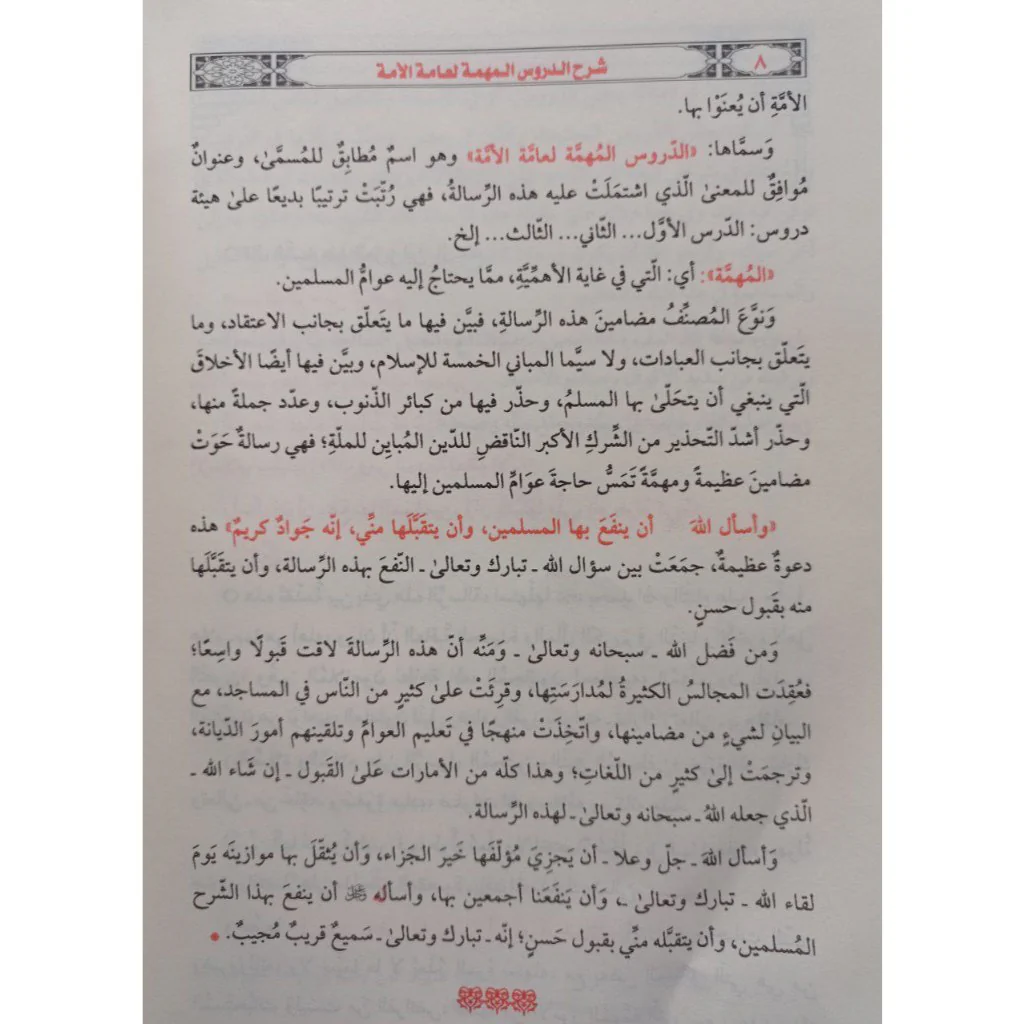 ٨
شرح الدروس المهمة لعامة الأمة
الأمَّةِ أن يُعنَوْا بها.
وَسمَّاها: «الدّروس المُهمَّة لعامَّة الأمَّة» وهو اسمٌ مُطابِقٌ للمُسمَّىٰ، وعنوانٌ
مُوافِقٌ للمعنىٰ الّذي اشتملَتْ عليه هذه الرِّسالةُ، فهي رُتِّبَتْ ترتيبًا بديعًا علىٰ هيئة
دروس: الدّرس الأوَّل... الثّاني... الثّالث... إلخ.
«المُهمَّة»: أي: الّتي في غاية الأهمِّيَّةِ، ممَّا يحتاجُ إليه عوامُّ المسلمين.
وَنوَّعَ المُصنِّفُ مضامينَ هذه الرِّسالةِ، فبيَّن فيها ما يتَعلّق بجانب الاعتقاد، وما
يتَعلّق بجانب العبادات، ولا سيَّما المباني الخمسة للإسلام، وبيَّن فيها أيضًا الأخلاقَ
الّتي ينبغي أن يتحَلّىٰ بها المسلمُ، وحذّر فيها من كبائر الذّنوب، وعدّد جملةً منها،
وحذّر أشدّ التّحذير من الشِّركِ الأكبر النّاقضِ للدّين المُبايِن للملّةِ؛ فهي رسالةٌ حَوَتْ
مضامينَ عظيمةً ومهمَّةً تَمَسُّ حاجةَ عوَامِّ المسلمين إليها.
«وأسأل اللهَ أن ينفَعَ بها المسلمين، وأن يتقبَّلَها منِّي، إنّه جَوادٌ كريمٌ» هذه
دعوةٌ عظيمةٌ، جمعَتْ بين سؤال الله ـ تبارك وتعالىٰ ـ النّفعَ بهذه الرِّسالة، وأن يتقبَّلَها
منه بقَبول حسنٍ.
وَمن فَضل الله ـ سبحانه وتعالىٰ ـ وَمَنِّه أنّ هذه الرِّسالةَ لاقت قَبولًا واسِعًا؛
فعُقِدَت المجالسُ الكثيرةُ لمُدارَسَتِها، وقرِئَتْ علىٰ كثيرٍ من النّاس في المساجد، مع
البيانِ لشيءٍ من مضامينها، واتّخِذَتْ منهجًا في تَعليم العوامِّ وتلقينهم أمورَ الدّيانة،
وترجمَتْ إلىٰ كثيرٍ من اللّغاتِ؛ وهذا كلّه من الأمارات عَلىٰ القَبول ـ إن شَاء الله ـ
الّذي جعله اللهُ ـ سبحانه وتعالىٰ ـ لهذه الرِّسالة.
وَأسأل اللهَ ـ جلّ وعلا ـ أن يَجزِيَ مُؤلّفَها خَيرَ الجَزاء، وَأن يُثقّلَ بها موازينَه يَومَ
لقاء الله ـ تبارك وتعالىٰ ـ، وَأن يَنفَعَنا أجمعين بها، وأسأله ﷻ أن ينفعَ بهذا الشّرح
المُسلمين، وأن يتقبَّله منِّي بقبول حَسنٍ؛ إنّه ـ تبارك وتعالىٰ ـ سَميعٌ قريبٌ مُجيبٌ.